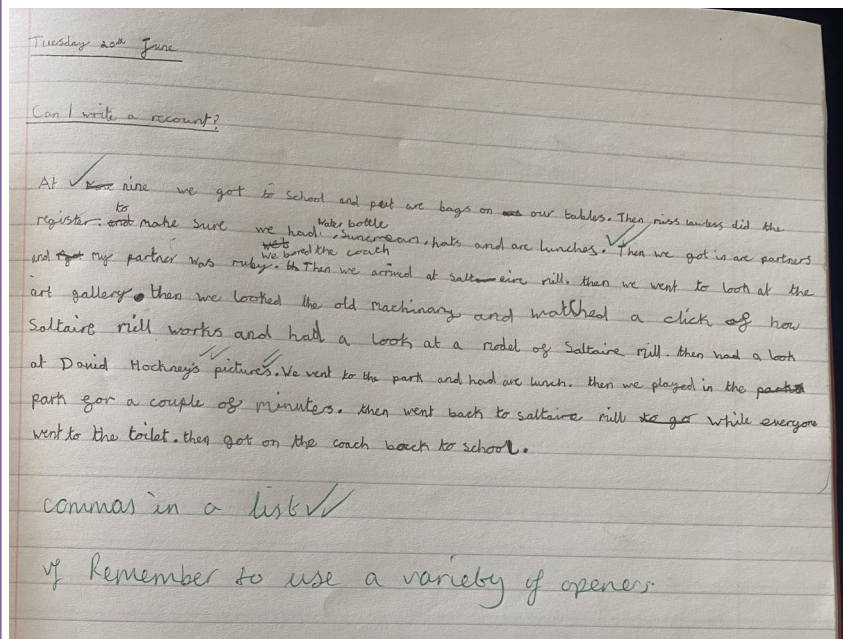 Tuesday 20th June
Can I write a recount?
At nine we got to school and put are bags on our tables. Then miss lawless did the
register. to make sure we had water bottle, Suncream, hats and are lunches. Then we got in are partners
and my partner was ruby. Then we bored the coach we arrived at salt eire mill. then we went to look at the
art gallery. then we looked the old machinary and watched a click of how
Saltaire mill works and had a look at a model of Saltaire Mill. then had a look
at David Hockney's pictures. We went to the park and had are lunch. then we played in the
park for a couple of minutes. then went back to saltaire mill while everyone
went to the toilet. then got on the coach back to school.
commas in a list
Remember to use a variety of openers.